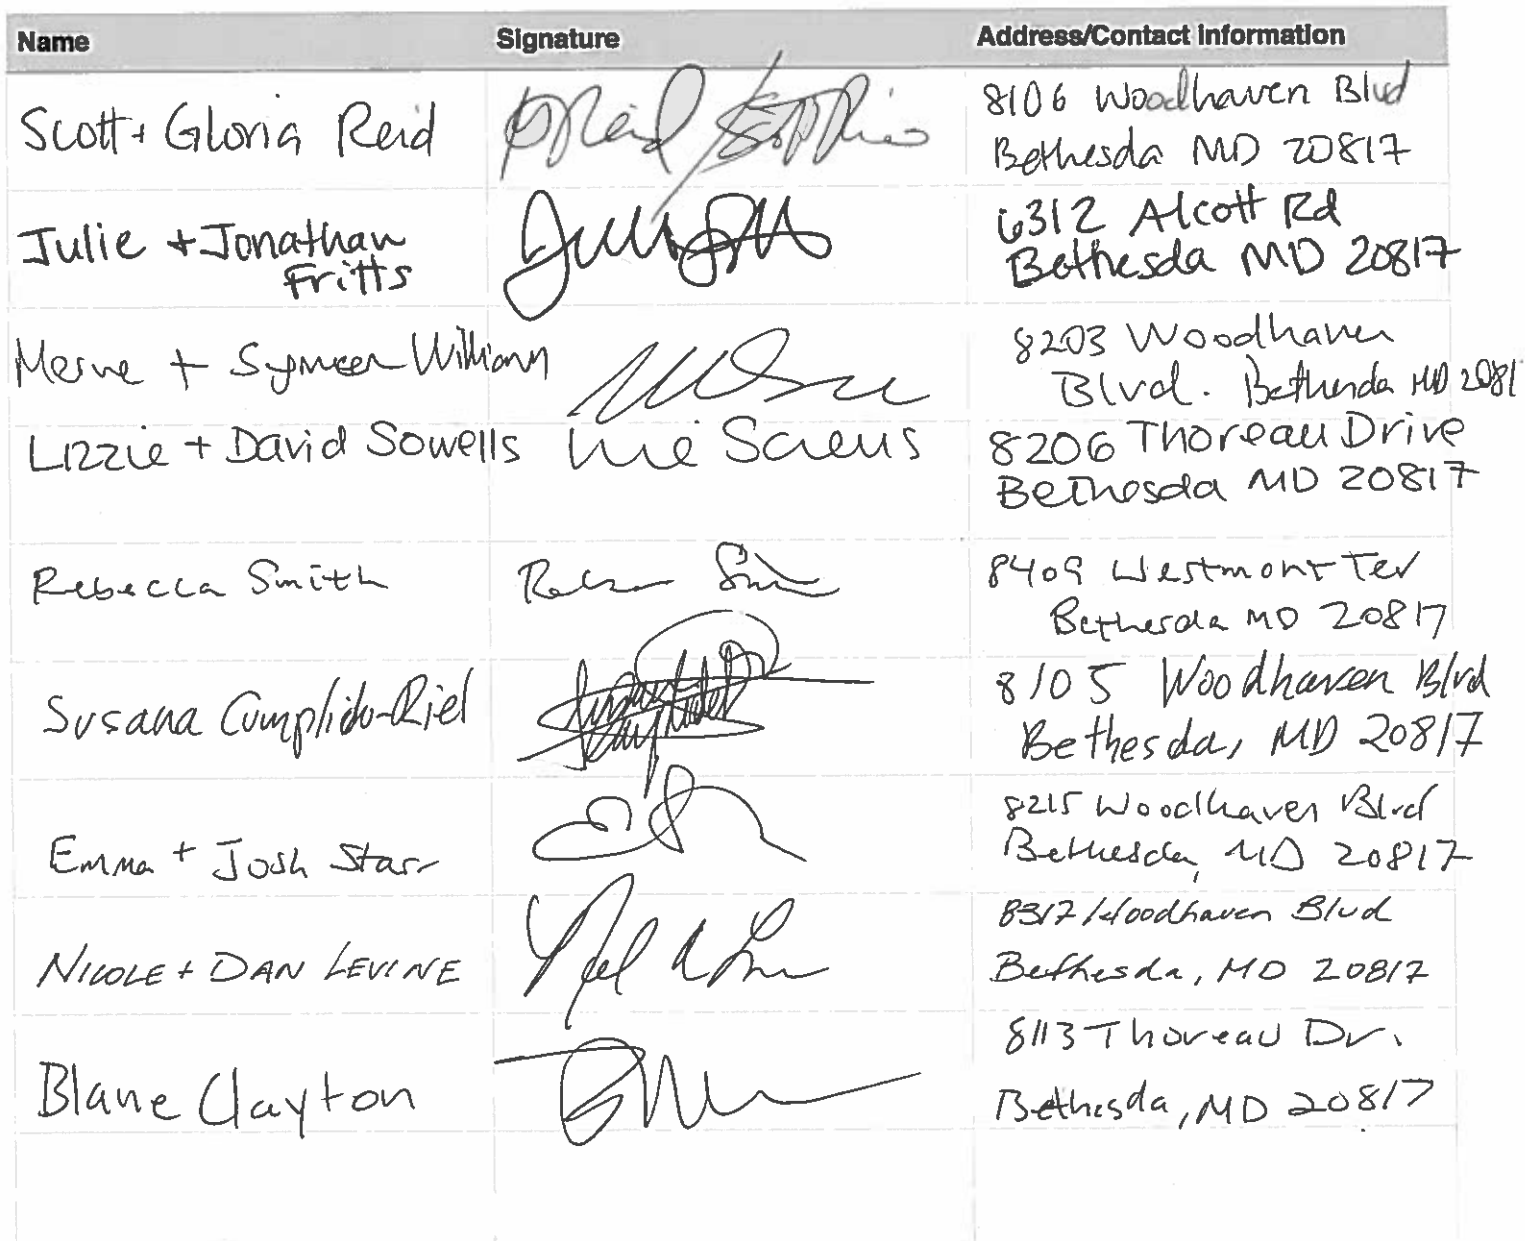 Name Signature Address/Contact Information
Scott + Gloria Reid 8106 Woodhaven Blvd
Bethesda MD 20817
Julie + Jonathan 6312 Alcott Rd
Fritts Bethesda MD 20817
+ 8203 Woodhaven
Blvd. Bethesda MD 2081
Lizzie + David Sowells 8206 Thoreau Drive
Bethesda MD 20817
Rebecca Smith 8409 Westmont Ter
Bethesda MD 20817
Susana Cumplido-Riel 8105 Woodhaven Blvd
Bethesda, MD 20817
Emma + Josh Starr 8215 Woodhaven Blvd
Bethesda, MD 20817
NICOLE + DAN LEVINE 8317 Woodhaven Blvd
Bethesda, MD 20817
Blane Clayton 8113 Thoreau Dr.
Bethesda, MD 20817